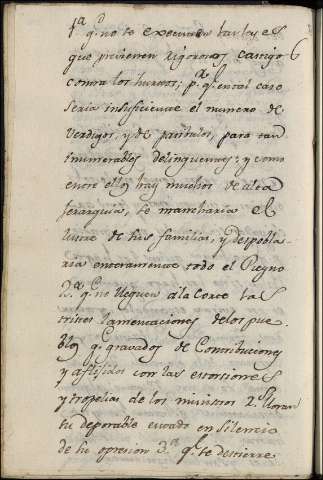 1.ª q.º no se executen tas leyes
que previenen rigoroso castigo
contra los hurtos; p.r q.e en tal caso
seria insuficiente el numero de
verdugos, y de patibulos, para tan
innumerables delinquentes: y como
entre ellos hay muchos de alta
jerarquia, se mancharia el
lustre de sus familias, y despobla-
ria enteramente todo el Reyno
2.ª q.º no lleguen a la Corte las
tristes lamentaciones de los pue-
blos q.e gravados de Contribuciones
y aflijidos con las extorsiones
y tropelias de los ministros 2.s lloran
su deporable estado en silencio
de su opresion 3.ª q.e se destierre